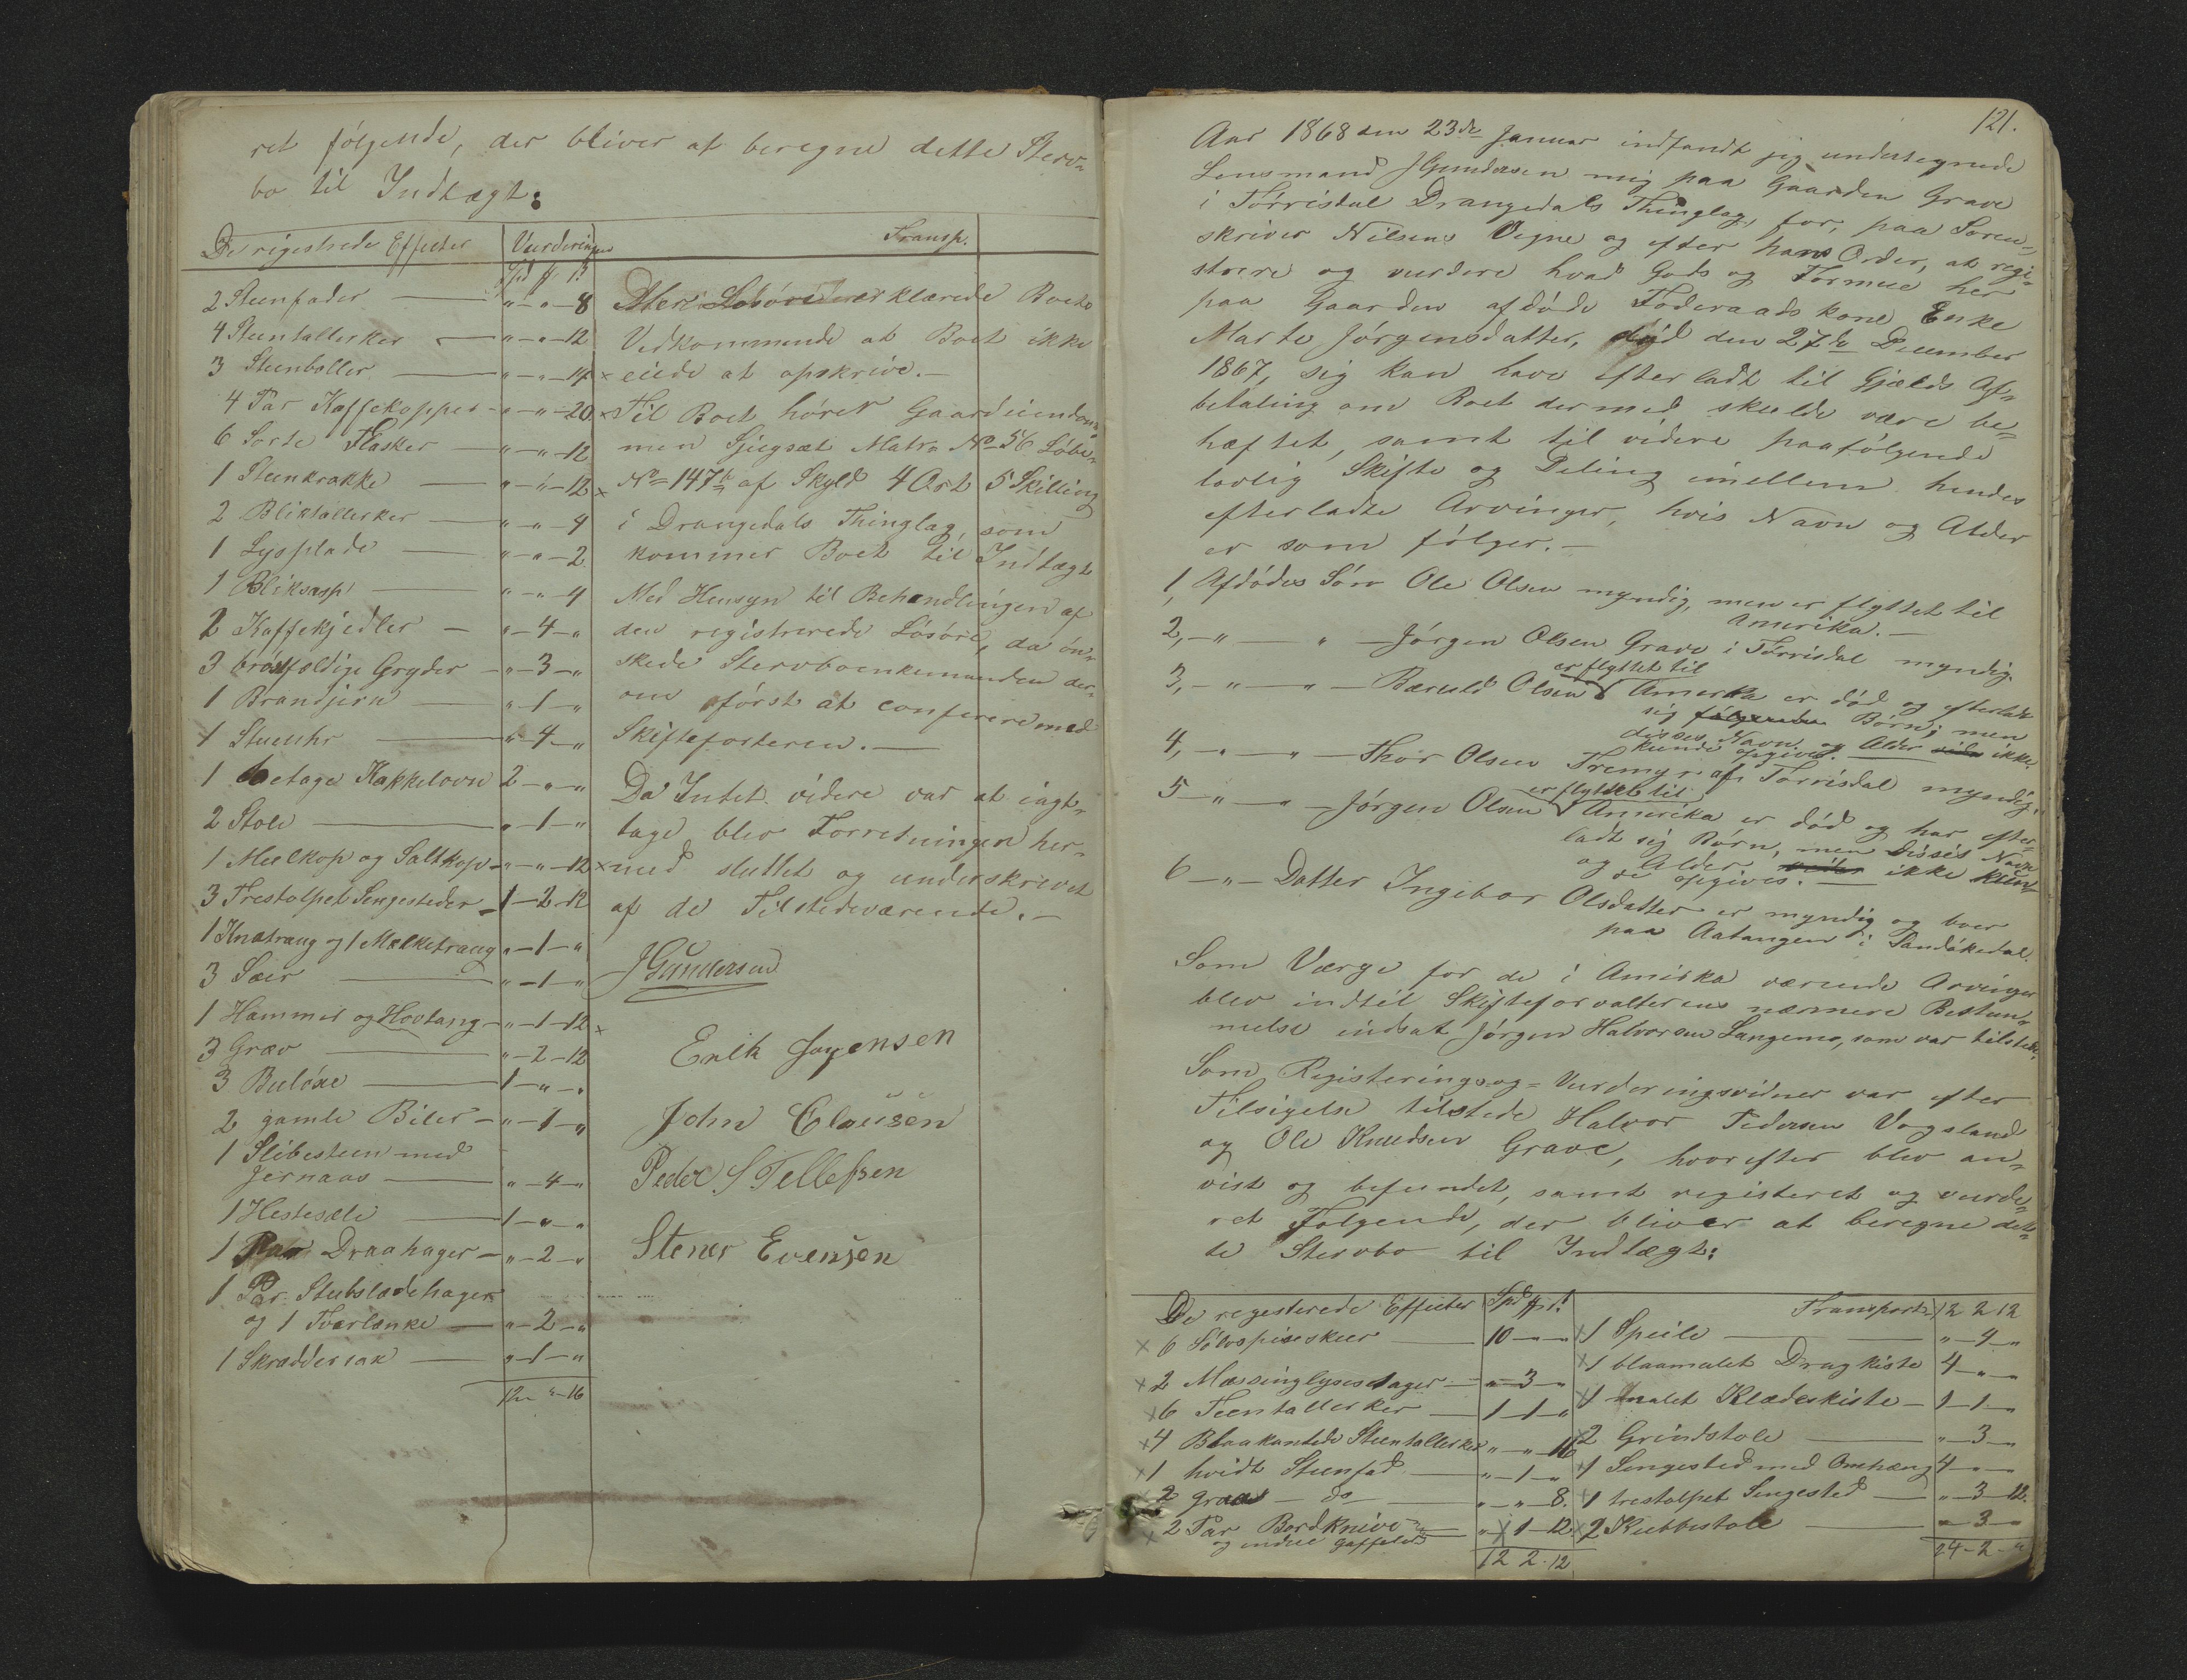 ret følgende, der bliver at beregne dette Sterv-
bo til Indtægt:
De rigestrede Effecter Vurderingen
Spd ƒ ß
2 Steenfader — „-„-8
4 Steentallerker — „-„-12
3 Steenboller — „-„-14 x
4 Par Kaffekopper - „-„-20 x
6 Sorte Flasker — „-„-12
1 Steenkrakke — „-„-12 x
2 Bliktallerker — „-„-4
1 Lysplade — „-„-2
1 Bliksasp — „-„-4
2 Kaffekjedler — „-4-„
3 brøstfældige Gryder — „-3-„
1 Brandjern — „-1-„
1 Stueuhr — „-4-„
1 toetage Kakkelovn 2-„-„
2 Stole — „-1-„
1 Meelkop og Saltkop - „-„-12 x
3 Trestolpet Sengesteder - 1-2-12
1 Knatraug og 1 Melketraug „-1-„
3 Sæir — „-1-„
1 Hammer og Hovtang - „-1-12 x
3 Græv — „-2-12
3 Buløxe — 1-„-„
2 gamle Biler - „-1-„
1 Slibesteen med
Jernaas — „-4-„
1 Hestesæle — 1-„-„
1 Par Draahager - „-2-„
1 Par Stubslædehager
og 1 Tværlænke — „-2-„
1 Skræddersax — „-1-„
12-„-16
Transp.
Af erklærede Boets
Vedkommende at Boet ikke
eiede at opskrive.-
Til Boet hører Gaardeiendom-
men Matr. No 56 Løbe-
No 147b af Skyld 4 Ort 5 Skilling
i Drangedals Thinglag, som
kommer Boet til Indtægt
Med Hensyn til Behandlingen af
den registrerede Løsøre, da øn-
skede Stervboenkemanden der-
om først at conferere med
Skifteforteren.-
Da Intet videre var at iagt-
tage blev Forretningen her-
med sluttet og underskrevet
af de Tilstedeværende.-
JGundersen
Erik Jørgensen
John Clausen
Peder S Tellefsen
Stener Evensen
121.
Aar 1868 den 23de Januar indfandt jeg undertegnede
Lensmand JGundersen mig paa Gaarden Grave
i Tørrisdal Drangedals Thinglag, for, paa Soren-
skriver Nilsens Vegne og efter hans Order, at regi-
strere og vurdere hvad Gods og Formue her
paa Gaarden afdøde Føderaadskone Enke
Marte Jørgensdatter, død den 27de December
1867, sig kan have efterladt til Gjælds Af-
betaling om Boet dermed skulde være be-
hæftet, samt til videre paafølgende
lovlig Skifte og Deling imellem hendes
efterladte Arvinger, hvis Navn og Alder
er som følger.-
1, Afdødes Søn Ole Olsen myndig, men er flyttet til
Amerika.-
2,-„-„-Jørgen Olsen Grave i Tørrisdal myndig.
3,-„-„-Bærulf Olsen er flyttet til Amerika er død og efterladt
sig følgende Børn; men
disses Navn og Alder ikke
kunde opgives.
4,-„-„-Thor Olsen Tremyr af Tørrisdal myndig.
5-„-„-Jørgen Olsen er flyttet til Amerika er død og har efter-
ladt sig Børn, men disses Navn
og Alder ikke kun-
de opgives.-
6-„-Datter Ingebor Olsdatter er myndig og boer
paa Aatangen i Sandøkedal.
Som Værge for de i Amerika værende Arvinger
blev indtil Skifteforvalterens nærmere Bestem-
melse indsat Jørgen Halvorsen Langemo, som var tilstede.
Som Registerings-og-Vurderingsvidner var efter
Tilsigelse tilstede Halvor Pedersen Vogsland
og Ole Knudsen Grave, hvorefter blev an-
vist og befundet, samt registeret og vurde-
ret Følgende, der bliver at beregne det-
te Stervbo til Indtægt:
De regesterede Effecter Spd ƒ ß
x 6 Sølvspiseskeer — 10-„-„
x 2 Messinglysestager - „-3-„
x 6 Teentallerker — 1-1-„
x 4 Blaakantede Steentallerker „-„-16
x 1 hvidt Steenfad — „-1-„
x 2 graae - do - „-„-8.
x 2 Par Bordknive — „-1-12
og endeel gaffeler
12 2-12
Transport 12 2 12
x 1 Speile — „-4-„
x 1 blaamalet Dragkiste 4-„-„
x 1 malet Klædeskiste - 1-1-„
x 2 Grindstole — „-3-„
x 1 Sengested med Omhæng 4-„-„
x 1 trestolpet Sengested — „-3-12.
x 2 Kubbestole — „-3-„
24-2-„